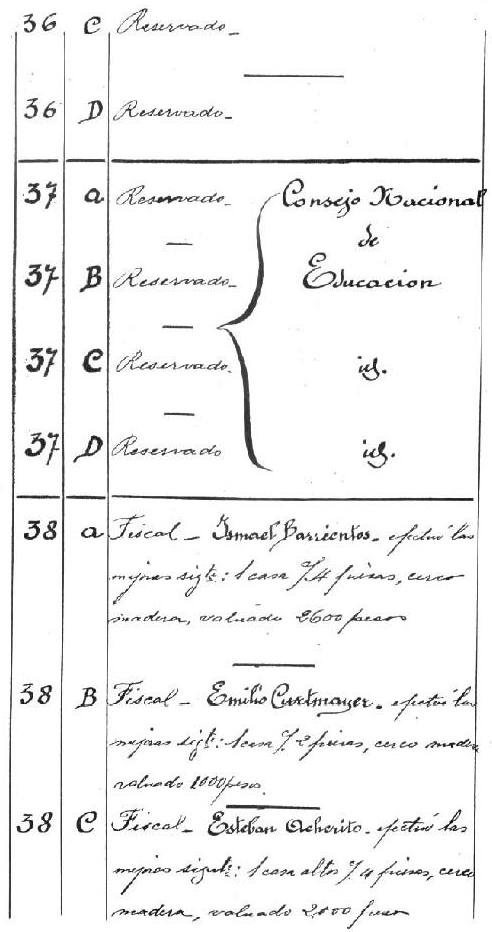 36 C Reservado_
36 D Reservado_
37 a Reservado_ Consejo Nacional
de
37 B Reservado_ Educacion
37 C Reservado_ id.
37 D Reservado id.
38 a Fiscal_ Ismael Barrientos_ efectuó las
mejoras sigte: 1 casa 7/4 piezas, cerco
madera, valuado 2600 pesos
38 B Fiscal_ Emilio _ efectuó las
mejoras sigte: 1 casa 7/2 piezas, cerco madera
valuado 1000 pesos.
38 C Fiscal_ Esteban Acherito_ efectuó las
mejoras sigte: 1 casa altos 7/4 piezas, cerco
madera, valuado 2,000 pesos